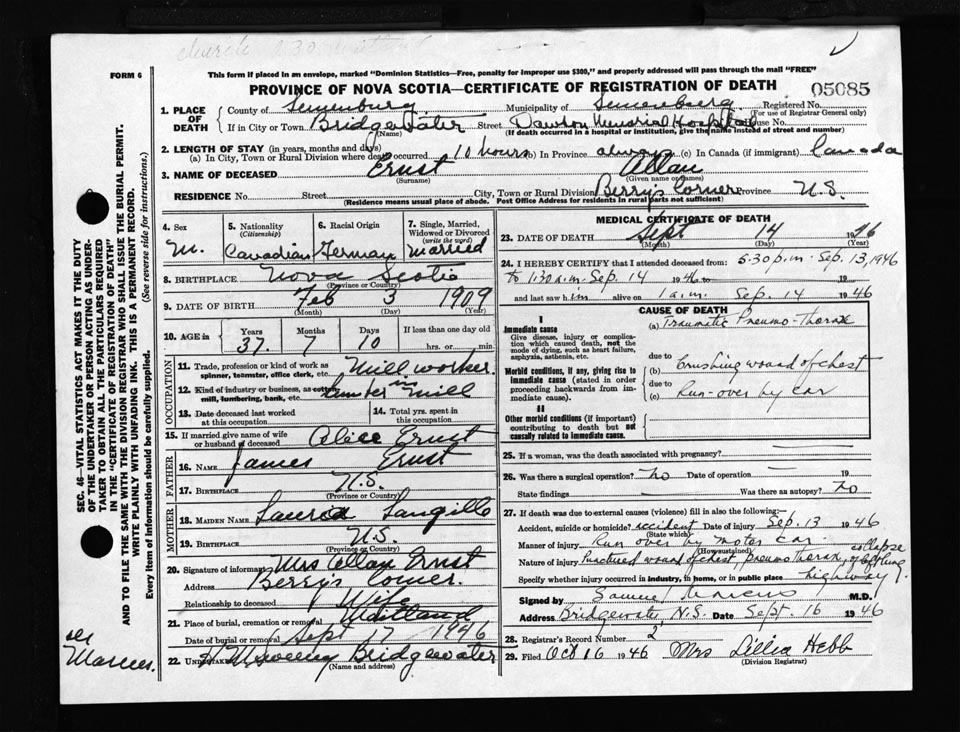 church 2 30
FORM 6
This form if placed in an envelope, marked "Dominion Statistics—Free, penalty for improper use $300," and properly addressed will pass through the mail "FREE"
PROVINCE OF NOVA SCOTIA—CERTIFICATE OF REGISTRATION OF DEATH
05085
SEC. 46—VITAL STATISTICS ACT MAKES IT THE DUTY
OF THE UNDERTAKER OR PERSON ACTING AS UNDER-
TAKER TO OBTAIN ALL THE PARTICULARS REQUIRED
IN THE "CERTIFICATE OF REGISTRATION OF DEATH"
AND TO FILE THE SAME WITH THE DIVISION REGISTRAR WHO SHALL ISSUE THE BURIAL PERMIT.
WRITE PLAINLY WITH UNFADING INK. THIS IS A PERMANENT RECORD.
Every item of information should be carefully supplied. (See reverse side for instructions.)
1. PLACE OF DEATH
County of Lunenburg Municipality of Lunenburg Registered No.
(For use of Registrar General only)
If in City or Town Bridgewater Street Dawson Memorial Hospital House No.
(Name) (If death occurred in a hospital or institution, give the name instead of street and number)
2. LENGTH OF STAY (in years, months and days)
(a) In City, Town or Rural Division where death occurred 10 hours (b) In Province always (c) In Canada (if immigrant) Canada
3. NAME OF DECEASED Ernst Allan
(Surname) (Given name or names)
RESIDENCE No. Street City, Town or Rural Division Berry's Corner Province N.S.
(Residence means usual place of abode. Post Office Address for residents in rural parts not sufficient)
4. Sex 5. Nationality (Citizenship) 6. Racial Origin 7. Single, Married, Widowed or Divorced (write the word)
M. Canadian German Married
8. BIRTHPLACE Nova Scotia
(Province or Country)
9. DATE OF BIRTH Feb 3 1909
(Month) (Day) (Year)
10. AGE in Years Months Days If less than one day old
37 7 10 hrs. or min.
OCCUPATION
11. Trade, profession or kind of work as Mill worker
spinner, teamster, office clerk, etc.
12. Kind of industry or business, as cotton in
mill, lumbering, bank, etc. Lumber mill
13. Date deceased last worked at this occupation
14. Total yrs. spent in this occupation
15. If married give name of wife or husband of deceased Alice Ernst
FATHER
16. NAME James Ernst
17. BIRTHPLACE N.S.
(Province or Country)
MOTHER
18. MAIDEN NAME Laura Langille
19. BIRTHPLACE N.S.
(Province or Country)
20. Signature of informant Mrs Allan Ernst
Address Berry's Corner.
Relationship to deceased Wife
21. Place of burial, cremation or removal Maitland
Date of burial or removal Sept 17 1946
22. UNDERTAKER Bridgewater
(Name and address)
Marcus.
MEDICAL CERTIFICATE OF DEATH
23. DATE OF DEATH Sept 14 1946
(Month) (Day) (Year)
24. I HEREBY CERTIFY that I attended deceased from: 5.30 p.m. Sep. 13, 1946
to 1:30 a.m. Sep. 14 1946 19
and last saw him alive on 1 a.m. Sep. 14 1946
CAUSE OF DEATH
I
Immediate cause
Give disease, injury or complica-
tion which caused death, not the
mode of dying, such as heart failure,
asphyxia, asthenia, etc.
(a) Traumatic Pneumo-Thorax
due to
Morbid conditions, if any, giving rise to
immediate cause (stated in order
proceeding backwards from im-
mediate cause).
(b) Crushing wound of chest
due to
(c) Run-over by car
II
Other morbid conditions (if important)
contributing to death but not
causally related to immediate cause.
25. If a woman, was the death associated with pregnancy?
26. Was there a surgical operation? no Date of operation — 19
State findings — Was there an autopsy? no
27. If death was due to external causes (violence) fill in also the following:—
Accident, suicide or homicide? accident Date of injury Sep. 13 1946
(State which)
Manner of injury Run over by motor car.
(How sustained)
Nature of injury Punctured wound of chest, pneumo Thorax, collapse of left lung
Specify whether injury occurred in industry, in home, or in public place highway
Signed by Samuel Marcus M.D.
Address Bridgewater, N.S. Date Sept. 16 1946
28. Registrar's Record Number 2
29. Filed Oct 16 1946 Mrs Lillia Hebb
(Division Registrar)